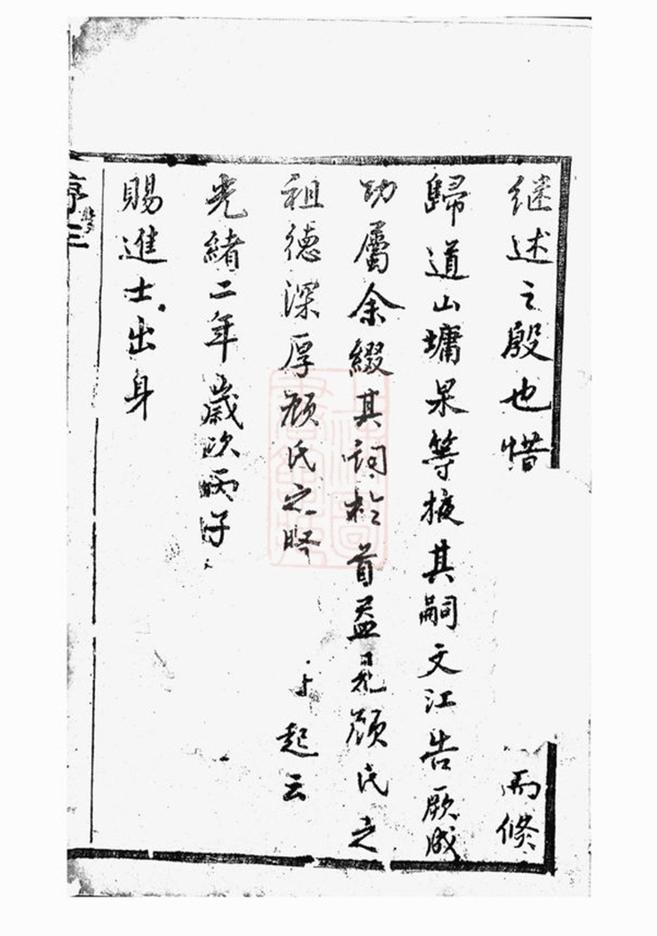 继述之殷也惜 而修
歸道山墉杲等掖其嗣文江告厥成
功屬余綴其詞於首益見顏氏之
祖德深厚顏氏之 起云
光緒二年歲次丙子
賜進士出身
序 三